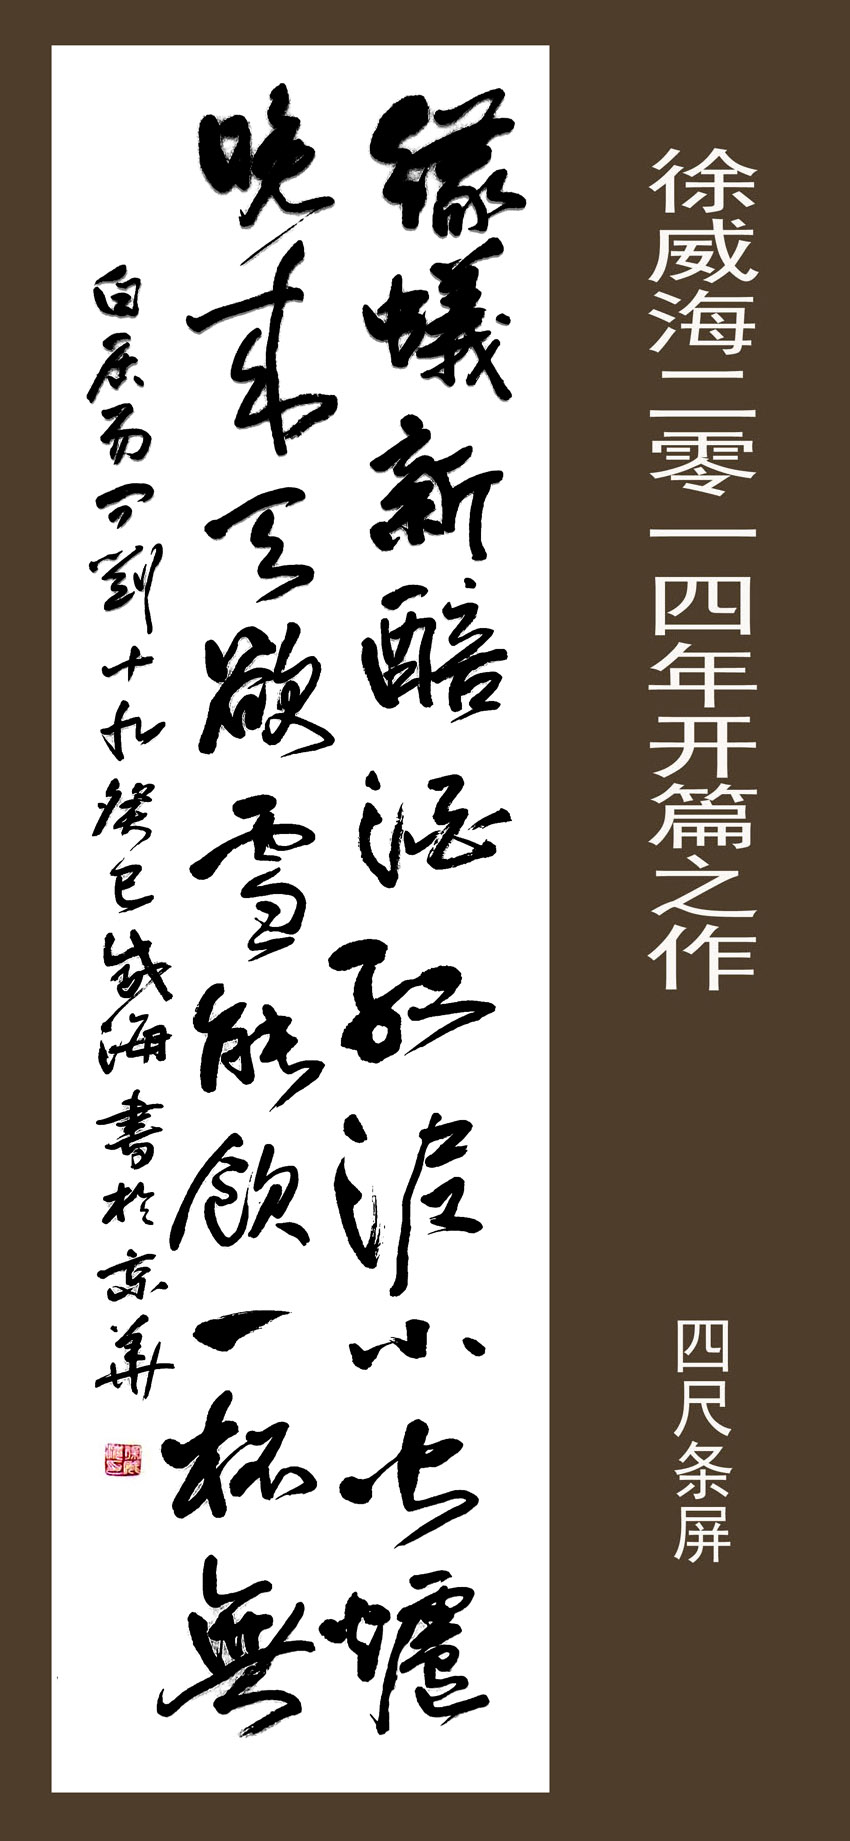 徐威海二零一四年开篇之作
四尺条屏
綠蟻新醅酒紅泥小火爐
晚來天欲雪能飲一杯無
白居易問劉十九癸巳威海書於京華